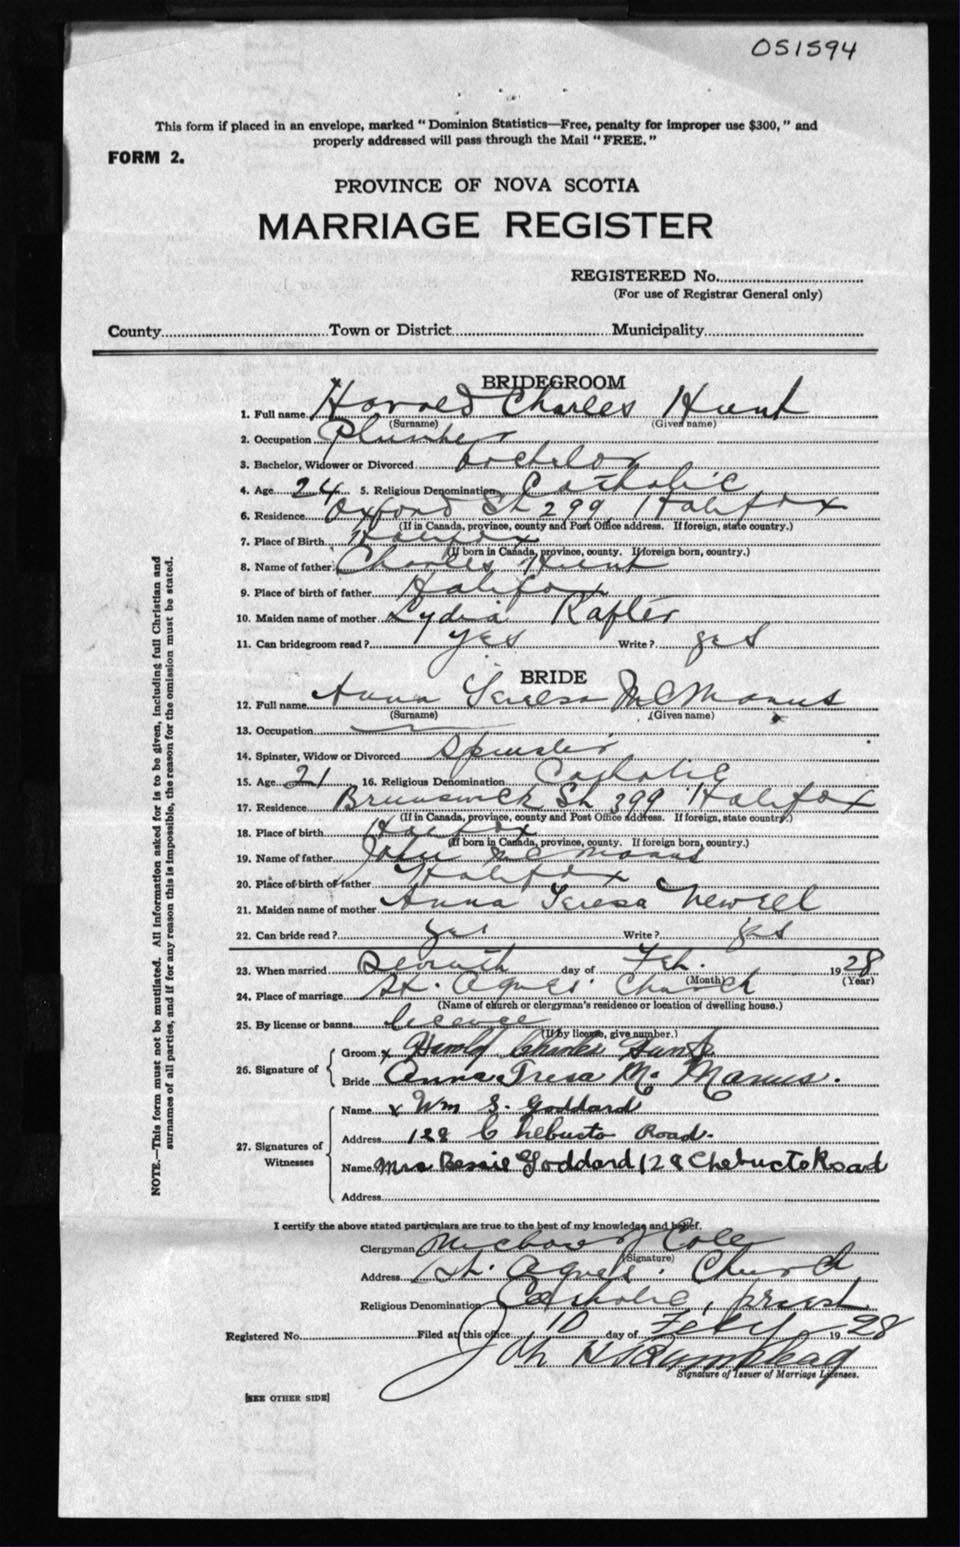 051594
This form if placed in an envelope, marked "Dominion Statistics—Free, penalty for improper use $300," and
properly addressed will pass through the Mail "FREE."
FORM 2.
PROVINCE OF NOVA SCOTIA
MARRIAGE REGISTER
REGISTERED No.
(For use of Registrar General only)
County Town or District Municipality
BRIDEGROOM
1. Full name Harold Charles Hunt
(Surname) (Given name)
2. Occupation Plumber
3. Bachelor, Widower or Divorced bachelor
4. Age 24 5. Religious Denomination Catholic
6. Residence Oxford St 299 Halifax
(If in Canada, province, county and Post Office address. If foreign, state country.)
7. Place of Birth Halifax
(If born in Canada, province, county. If foreign born, country.)
8. Name of father Charles Hunt
9. Place of birth of father Halifax
10. Maiden name of mother Lydia Rafter
11. Can bridegroom read? yes Write? yes
BRIDE
12. Full name Anna Teresa McManus
(Surname) (Given name)
13. Occupation —
14. Spinster, Widow or Divorced Spinster
15. Age 21 16. Religious Denomination Catholic
17. Residence Brunswick St 399 Halifax
(If in Canada, province, county and Post Office address. If foreign, state country.)
18. Place of birth Halifax
(If born in Canada, province, county. If foreign born, country.)
19. Name of father John McManus
20. Place of birth of father Halifax
21. Maiden name of mother Anna Teresa Newell
22. Can bride read? yes Write? yes
23. When married Seventh day of Feb. 1928
(Month) (Year)
24. Place of marriage St. Agnes' Church
(Name of church or clergyman's residence or location of dwelling house.)
25. By license or banns licence
(If by license, give number.)
26. Signature of
Groom x Harold Charles Hunt
Bride Anna Tresa McManus.
27. Signatures of Witnesses
Name x Wm S. Goddard
Address 128 Chebucto Road.
Name Mrs Bessie Goddard 128 Chebucto Road
Address
I certify the above stated particulars are true to the best of my knowledge and belief.
Clergyman Cole
(Signature)
Address St. Agnes' Church
Religious Denomination Catholic, priest
Registered No. Filed at this office 10 day of Feby 1928
Signature of Issuer of Marriage Licenses.
[SEE OTHER SIDE]
NOTE.—This form must not be mutilated. All information asked for is to be given, including full Christian and
surnames of all parties, and if for any reason this is impossible, the reason for the omission must be stated.